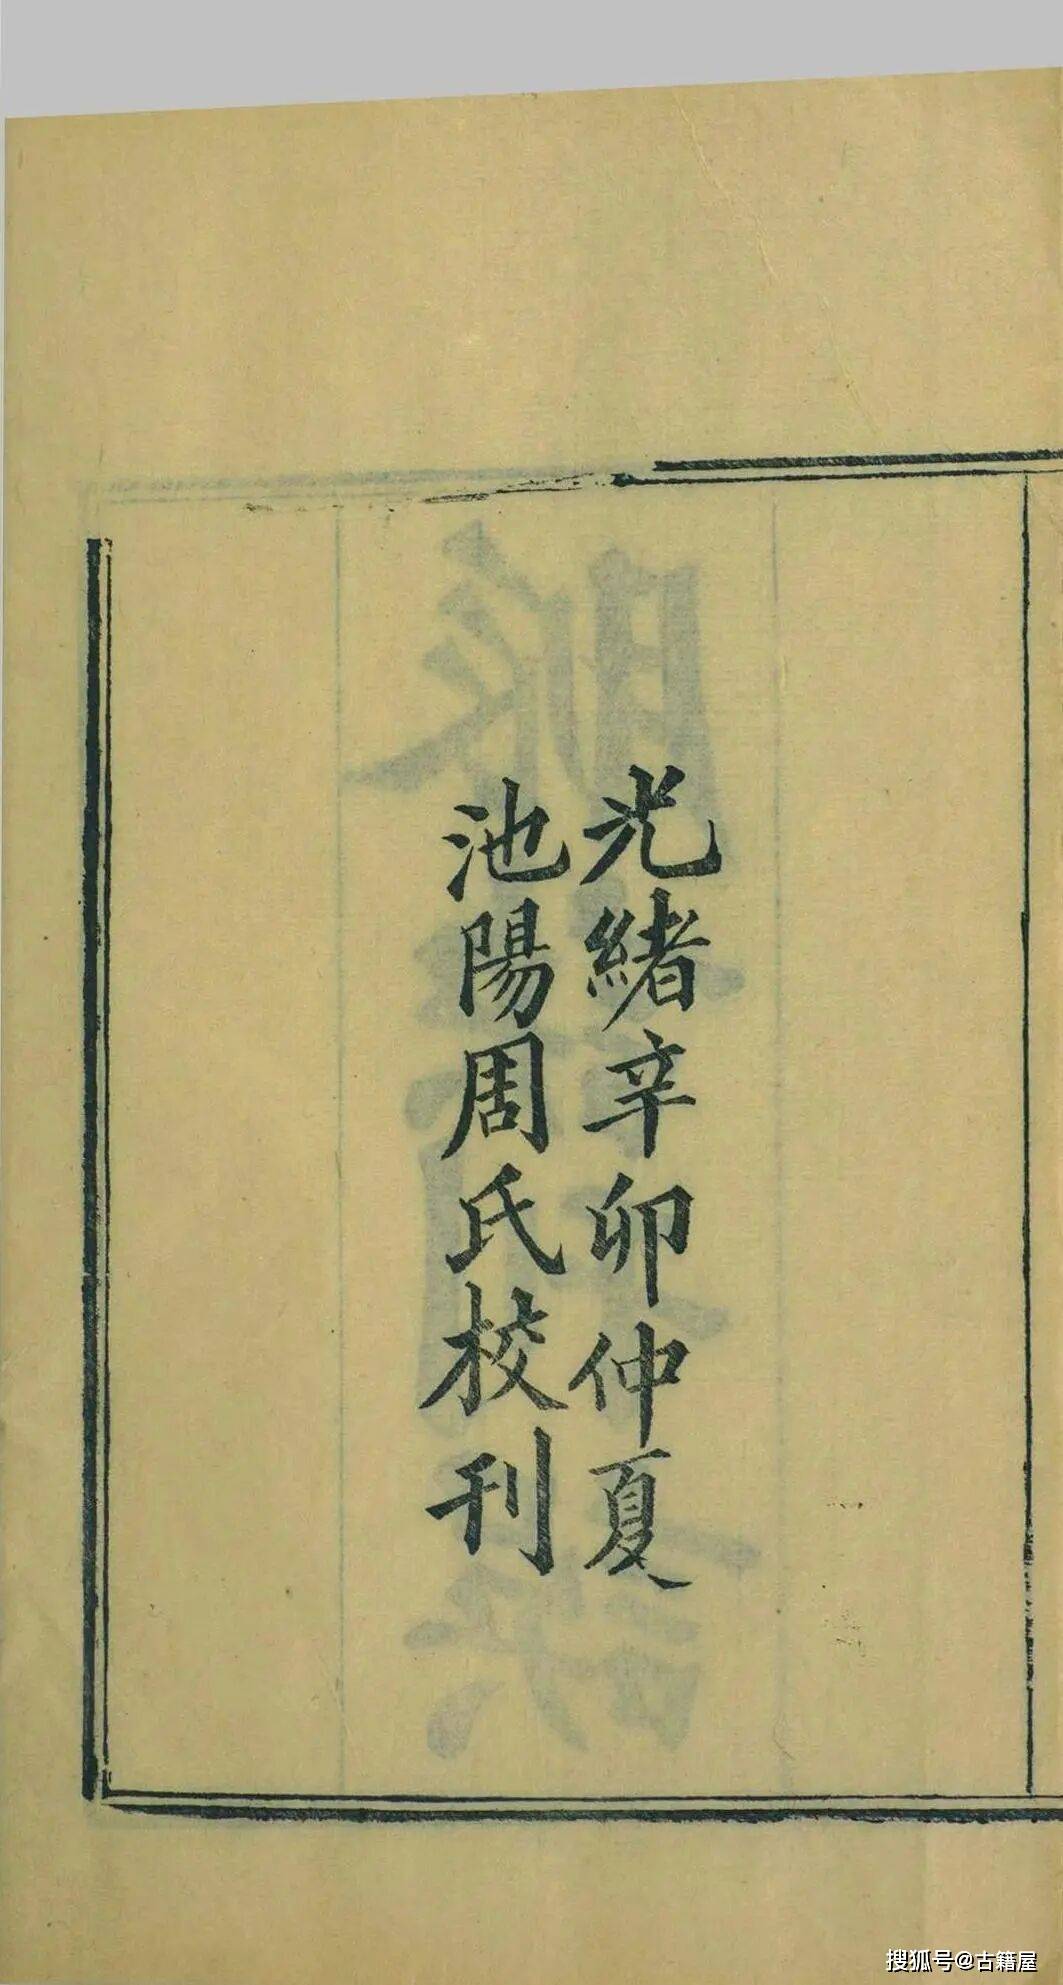 光緒辛卯仲夏
池陽周氏校刊
搜狐号@古籍屋